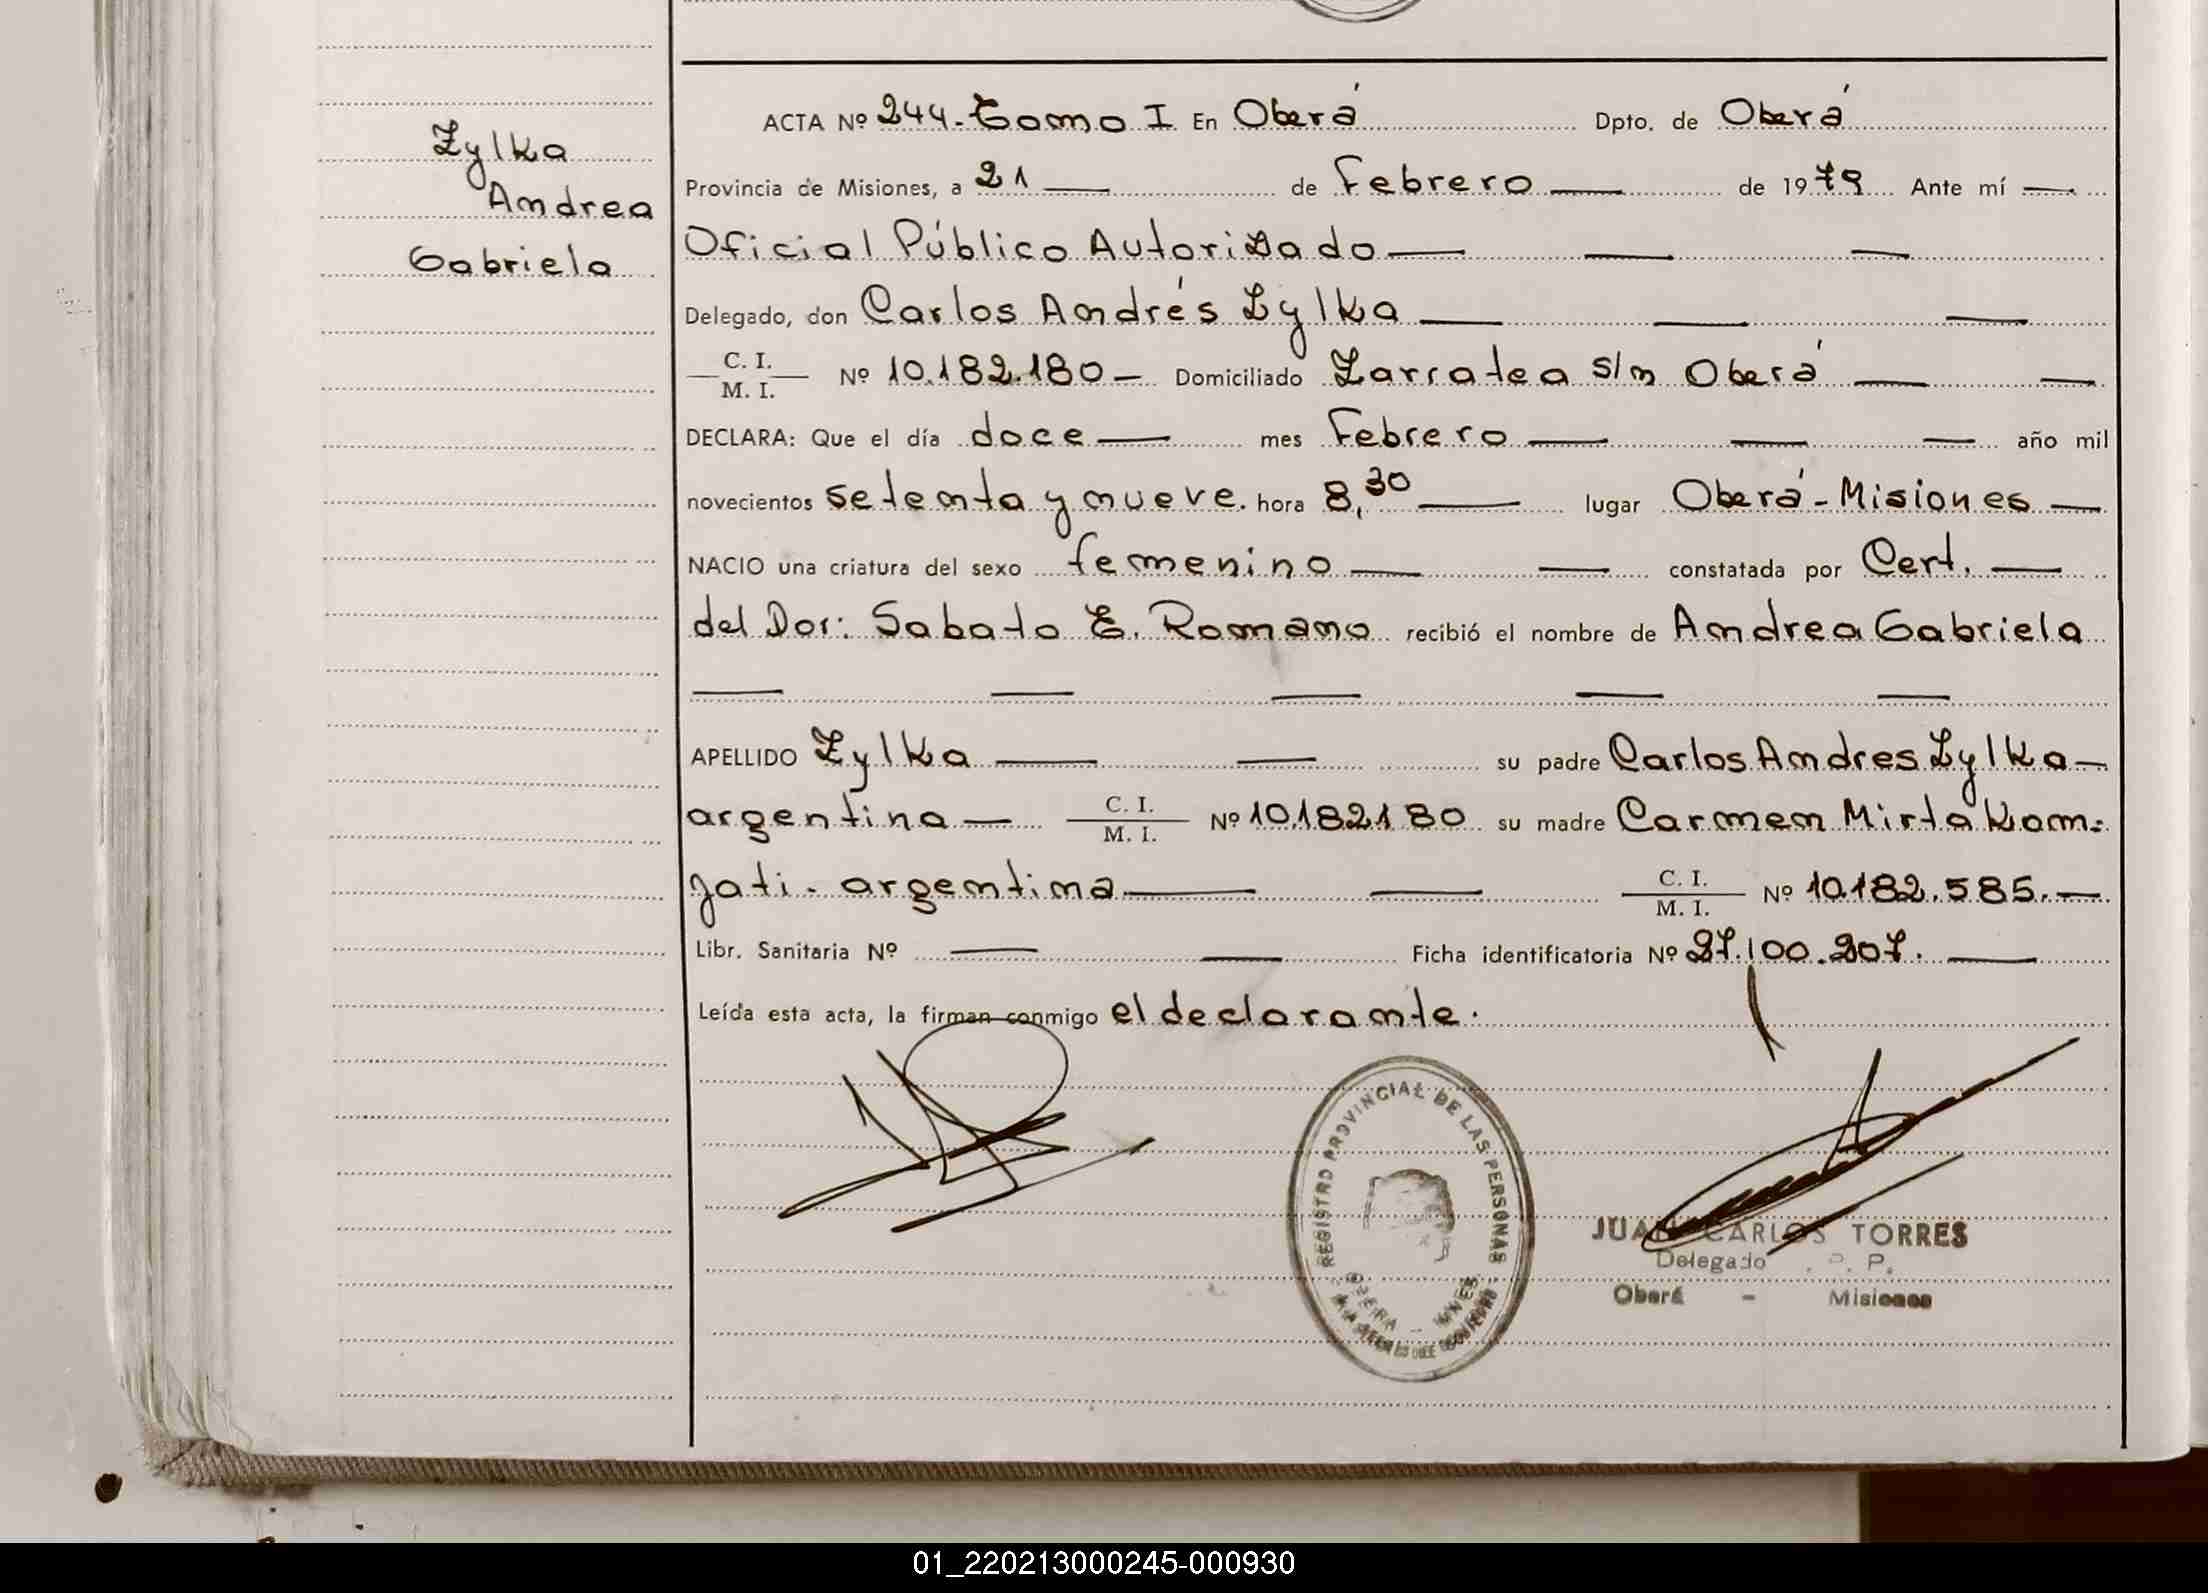 Zylka
Andrea
Gabriela
ACTA Nº 244-Tomo I En Oberá Dpto. de Oberá
Provincia de Misiones, a 21 — de Febrero — de 1979 Ante mí —
Oficial Público Autorizado — — —
Delegado, don Carlos Andrés Zylka — — —
C. I. / M. I. Nº 10.182.180 — Domiciliado Zarratea s/n Oberá — —
DECLARA: Que el día doce — mes Febrero — — — año mil
novecientos setenta y nueve. hora 8,30 — lugar Oberá - Misiones —
NACIO una criatura del sexo femenino — — constatada por Cert. —
del Dor: Sabato E. Romano recibió el nombre de Andrea Gabriela
— — — — —
APELLIDO Zylka — — su padre Carlos Andres Zylka —
argentina — C. I. / M. I. Nº 10.182180 su madre Carmen Mirta Kom-
jati - argentina — — C. I. / M. I. Nº 10.182.585. —
Libr. Sanitaria Nº — — Ficha identificatoria Nº 27.100.207. —
Leída esta acta, la firman conmigo el declarante.
REGISTRO PROVINCIAL DE LAS PERSONAS
JUAN CARLOS TORRES
Delegado . P. P.
Oberá - Misiones
01_220213000245-000930